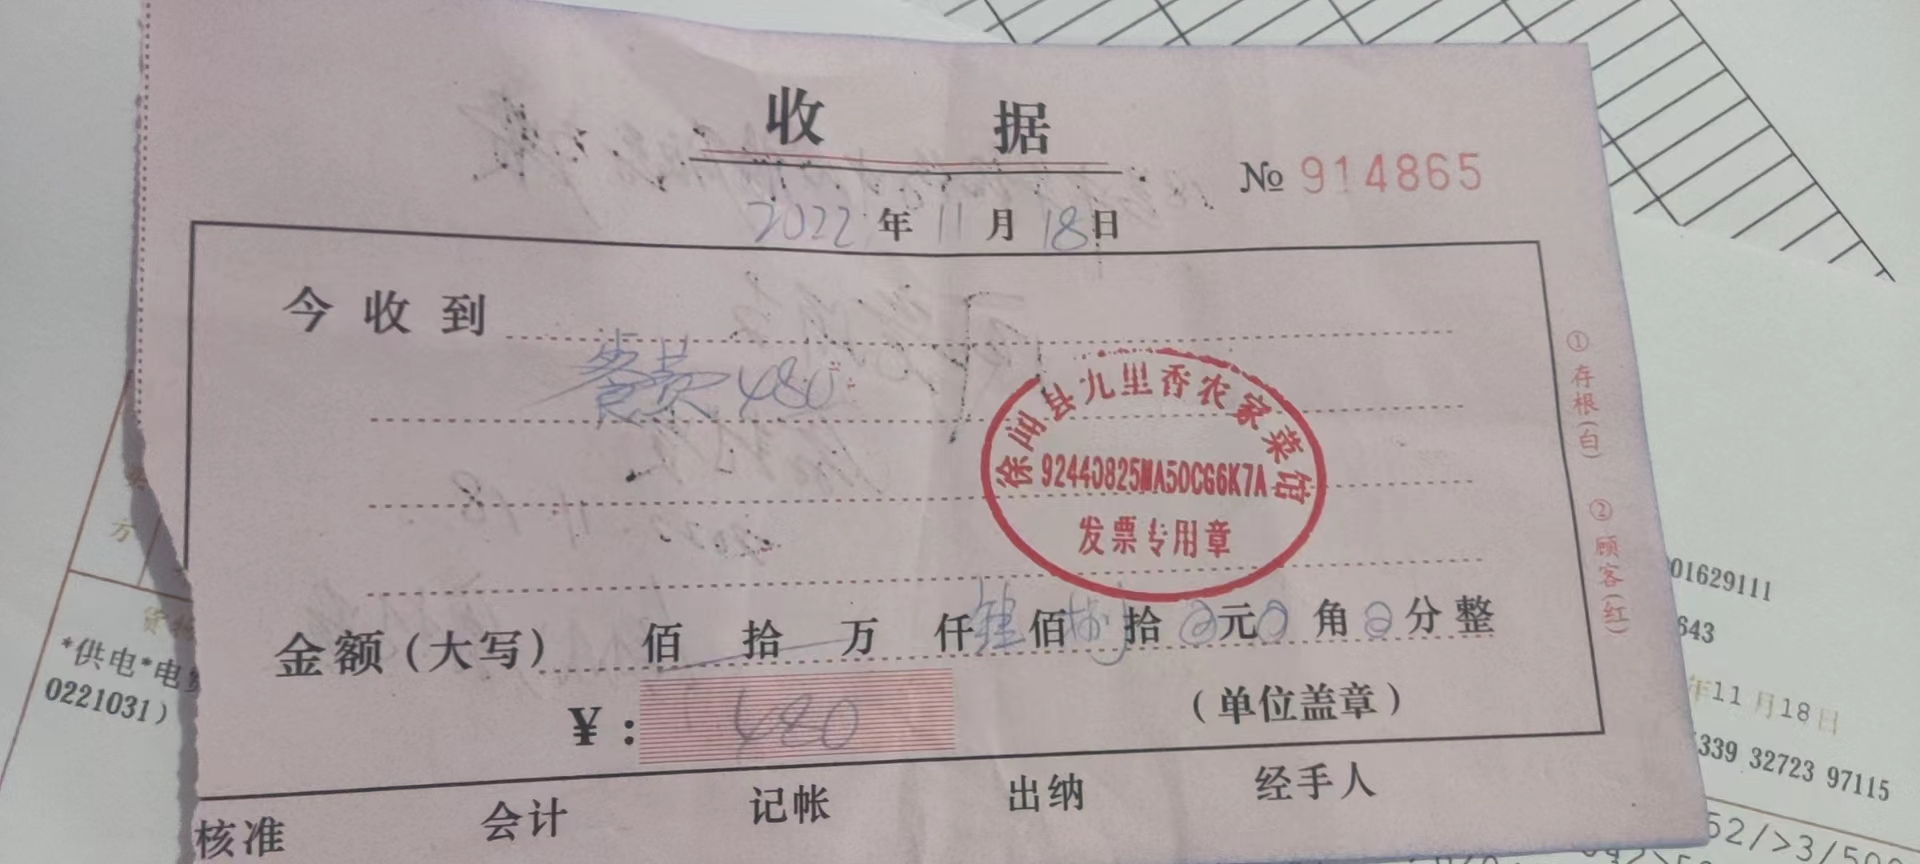 收 据
No 914865
2022 年 11 月 18 日
今收到
餐费 480
徐闻县九里香农家菜馆
92440825MA50CG6K7A
发票专用章
金额(大写) 佰 拾 万 仟 肆 佰 捌 拾 0 元 0 角 0 分整
¥: 480
(单位盖章)
核准 会计 记帐 出纳 经手人
①存根(白) ②顾客(红)
方
*供电*电
0221031)
01629111
643
年11月18日
339 32723 97115
52/>3/500